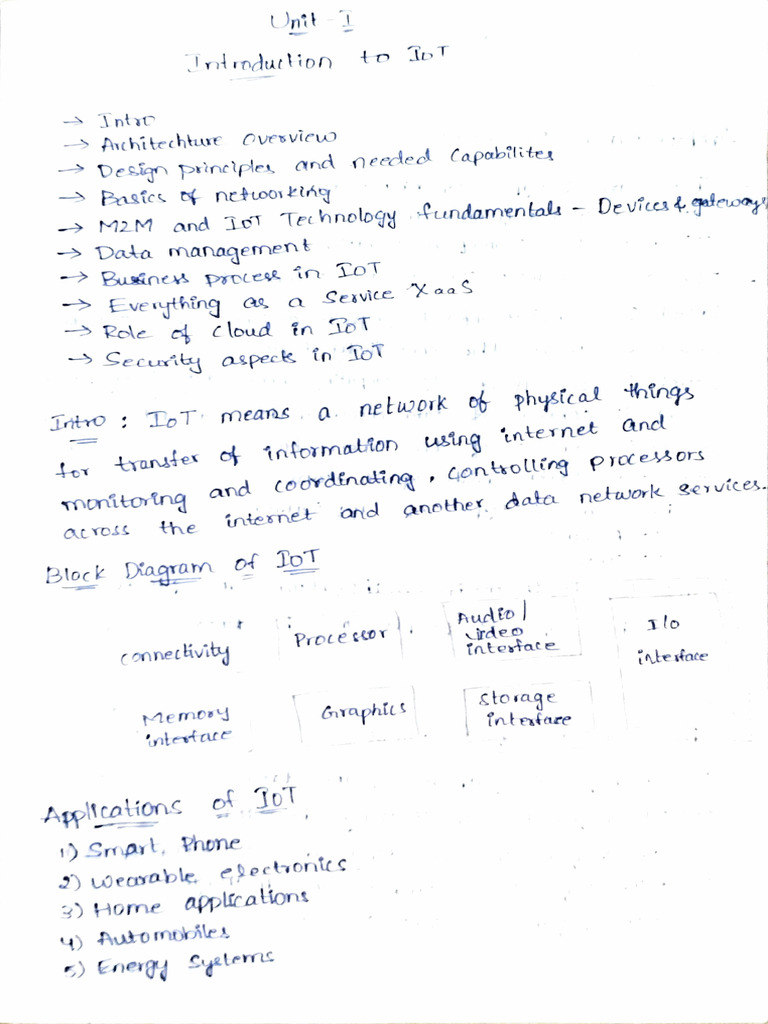 Unit - I
Introduction to IoT
→ Intro
→ Architechture overview
→ Design principles and needed Capabilites
→ Basics of networking
→ M2M and IoT Technology fundamentals - Devices & gateways
→ Data management
→ Business process in IoT
→ Everything as a Service XaaS
→ Role of cloud in IoT
→ Security aspects in IoT
Intro : IoT means a network of physical things
for transfer of information using internet and
monitoring and coordinating, controlling processors
across the internet and another data network services.
Block Diagram of IoT
connectivity
Processor
Audio/
video
interface
I/o
interface
Memory
interface
Graphics
Storage
interface
Applications of IoT
1) Smart Phone
2) Wearable electronics
3) Home applications
4) Automobiles
5) Energy Systems